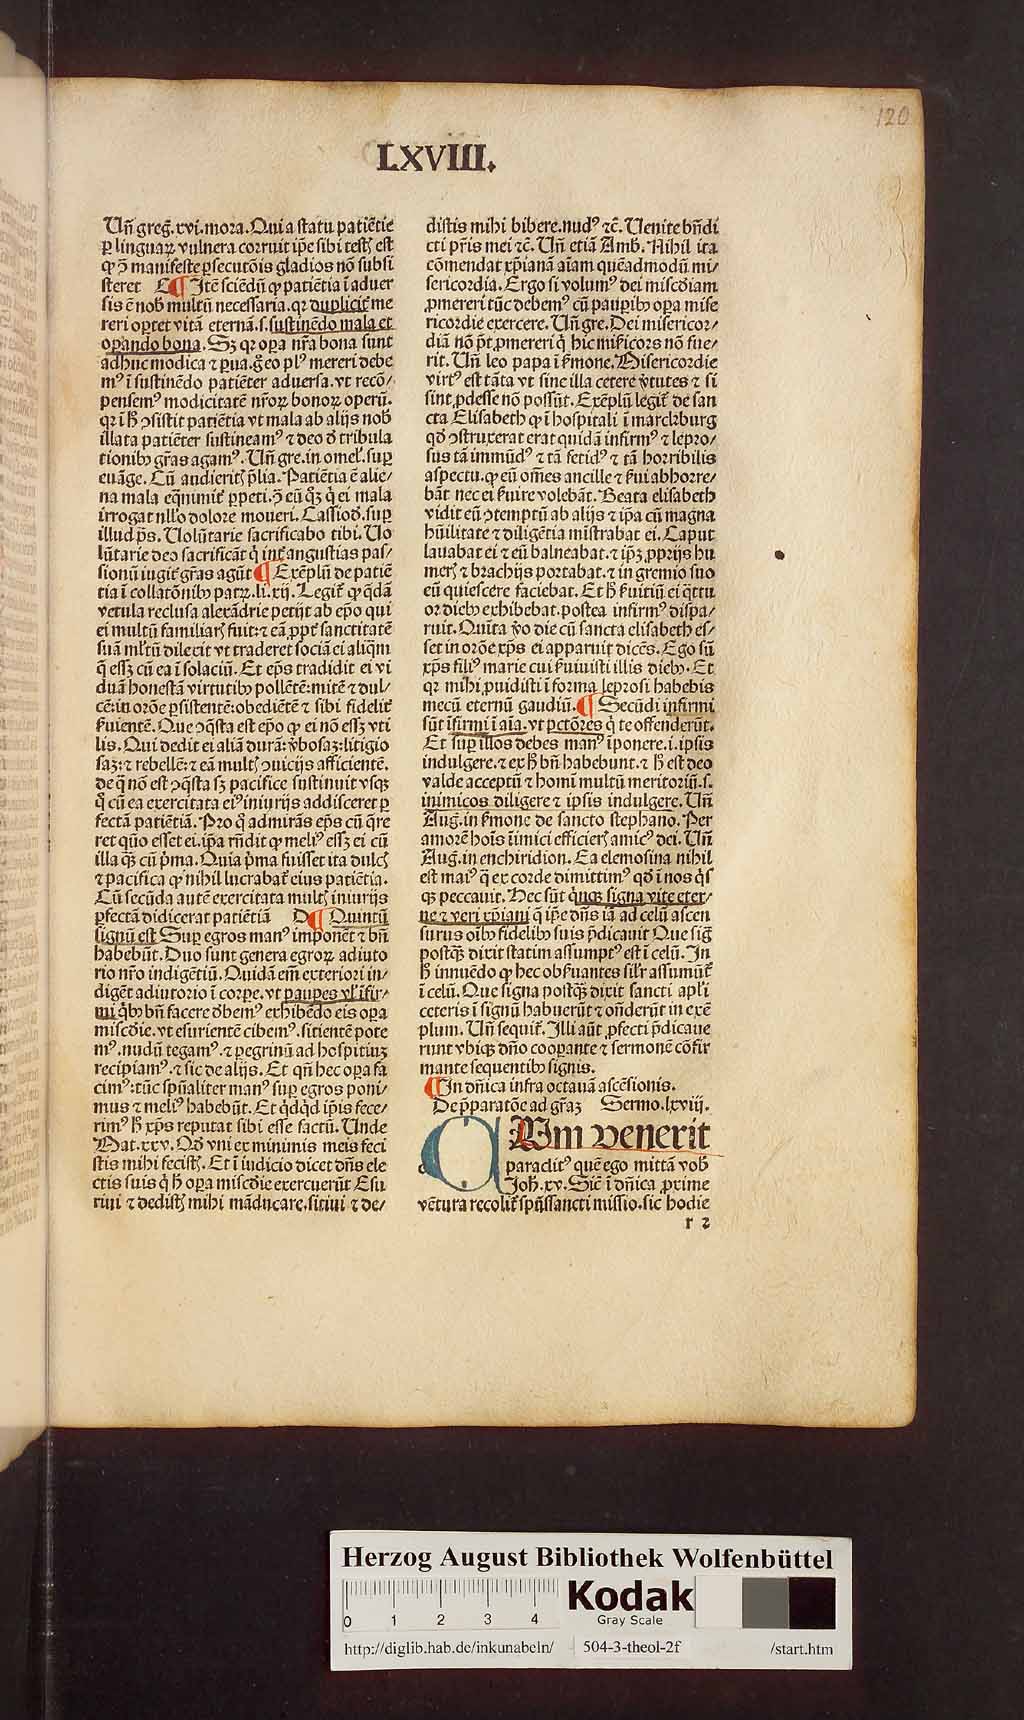 120
LXVIII.
Uñ greg̃. xvi. mora. Qui a statu patiẽtie
ꝑ linguaꝝ vulnera corruit ip̃e sibi testꝭ est
ꝙ ꝯ̃ manifeste ꝑsecutõis gladios nõ subsi
steret C ¶ Itẽ sciẽdũ ꝙ patiẽtia ĩ aduer
sis ẽ nob̃ multũ necessaria. qꝛ duplicit̃ me
reri oꝑtet vitã eternã. s. sustinẽdo mala et
oꝑando bona. Sꝫ qꝛ oꝑa nr̃a bona sunt
adhuc modica ⁊ ꝑua. g̃ eo plꝰ mereri debe
mꝰ ĩ sustinẽdo patiẽter aduersa. vt recõ-
pensemꝰ modicitatẽ nr̃oꝝ bonoꝝ operũ.
qꝛ ĩ h̃ ꝯsistit patiẽtia vt mala ab alijs nob̃
illata patiẽter sustineamꝰ ⁊ deo ð tribula
tionibꝰ gr̃as agamꝰ. Uñ gre. in omel̃. suꝑ
euãge. Cũ audieritꝭ p̃lia. Patiẽtia ẽ alie-
na mala eq̃nimit̃ ꝑpeti. ꝯ̃ eũ q̊ꝫ q̇ ei mala
irrogat nll̃o dolore moueri. Cassioð. suꝑ
illud pš. Uolũtarie sacrificabo tibi. Uo
lũtarie deo sacrificãt q̇ int̃ angustias pas-
sionũ iugit̃ gr̃as agũt ¶ Exẽplũ de patiẽ
tia ĩ collatõnibꝰ patꝝ. li. xij. Legit̃ ꝙ q̃dã
vetula reclusa alexãdrie petijt ab ep̃o qui
ei multũ familiarꝭ fuit: ⁊ eã ꝓpt̃ sanctitatẽ
suã ml̃tũ dilexit vt traderet sociã ei aliqm̃
q̃ essꝫ cũ ea ĩ solaciũ. Et ep̃s tradidit ei vi
duã honestã virtutibꝰ pollẽtẽ: mitẽ ⁊ dul-
cẽ: in orõe ꝑsistentẽ: obediẽtẽ ⁊ sibi fidelit̃
ẜuientẽ. Que ꝯq̃sta est ep̃o ꝙ ei nõ essꝫ vti
lis. Qui dedit ei aliã durã: v̓bosaꝫ: litigio
saꝫ: ⁊ rebellẽ: ⁊ eã multꝭ ꝯuicijs afficientẽ.
de q̃ nõ est ꝯq̃sta sꝫ pacifice sustinuit vsqꝫ
q̊ cũ ea exercitata eiꝰ iniurijs addisceret ꝑ
fectã patiẽtiã. Pro q̊ admirãs ep̃s cũ q̃re
ret quõ esset ei. ip̃a rñdit ꝙ meliꝰ essꝫ ei cũ
illa q̃ꝫ cũ p̃ma. Quia p̃ma fuisset ita dulcꝭ
⁊ pacifica ꝙ nihil lucrabat̃ eius patiẽtia.
Cũ secũda autẽ exercitata multꝭ iniurijs
ꝑfectã didicerat patiẽtiã D ¶ Quintũ
signũ est Suꝑ egros manꝰ imponẽt ⁊ bñ
habebũt. Duo sunt genera egroꝝ adiuto
rio nr̃o indigẽtiũ. Quidã em̃ exteriori in-
digẽt adiutorio ĩ corꝑe. vt pauꝑes vl̃ ĩfir-
mi q̇bꝰ bñ facere ðbemꝰ exhibẽdo eis oꝑa
miscðie. vt esurientẽ cibemꝰ. sitientẽ pote
mꝰ. nudũ tegamꝰ. ⁊ ꝑegrinũ ad hospitiuꝫ
recipiamꝰ. ⁊ sic de alijs. Et qñ hec oꝑa fa
cimꝰ: tũc sp̃ualiter manꝰ suꝑ egros poni-
mus ⁊ meliꝰ habebũt. Et q̇dq̇d ip̃is fece-
rimꝰ h̃ xp̃s reputat sibi esse factũ. Unde
Mat. xxv. Qð vni ex minimis meis feci
stis mihi fecistꝭ. Et ĩ iudicio dicet dñs ele
ctis suis q̇ h̃ oꝑa miscðie exercuerũt Esu
riui ⁊ dedistꝭ mihi mãducare. sitiui ⁊ de-
distis mihi bibere. nudꝰ ⁊c̃. Uenite bñdi
cti pr̃is mei ⁊c̃. Uñ etiã Amb. Nihil ita
cõmendat xp̃ianã aĩam quẽadmodũ mi-
sericordia. Ergo si volumꝰ dei miscðiam
ꝓmereri tũc debemꝰ cũ pauꝑibꝰ oꝑa mise
ricordie exercere. Uñ gre. Dei misericor-
diã nõ p̃t ꝓmereri q̇ hic miẜicors nõ fue-
rit. Uñ leo papa ĩ ẜmone. Misericordie
virtꝰ est tãta vt sine illa cetere v̓tutes ⁊ si
sint ꝓdesse nõ possũt. Exẽplũ legit̃ de san
cta Elisabeth ꝙ ĩ hospitali ĩ marchburg
qð ꝯstruxerat erat quidã infirmꝰ ⁊ lepro-
sus tã immũdꝰ ⁊ tã fetidꝰ ⁊ tã horribilis
aspectu. ꝙ eũ om̃es ancille ⁊ ẜui abhorre-
bãt nec ei ẜuire volebãt. Beata elisabeth
vidit eũ ꝯtemptũ ab alijs ⁊ ip̃a cũ magna
hũilitate ⁊ diligẽtia mĩstrabat ei. Caput
lauabat ei ⁊ eũ balneabat. ⁊ ip̃ꝫ ꝓprijs hu
merꝭ ⁊ brachijs portabat. ⁊ in gremio suo
eũ quiescere faciebat. Et h̃ ẜuitiũ ei q̃ttu
or diebꝰ exhibebat. postea infirmꝰ dispa-
ruit. Quĩta v̓o die cũ sancta elisabeth es-
set in orõe xp̃s ei apparuit dicẽs. Ego sũ
xp̃s filiꝰ marie cui ẜuiuisti illis diebꝰ. Et
qꝛ mihi ꝓuidisti ĩ forma leprosi habebis
mecũ eternũ gaudiũ. ¶ Secũdi infirmi
sũt ĩfirmi ĩ aĩa. vt pctõres q̇ te offenderũt.
Et suꝑ illos debes manꝰ ĩponere. i. ipsis
indulgere. ⁊ ex h̃ bñ habebunt. ⁊ h̃ est deo
valde acceptũ ⁊ homĩ multũ meritoriũ. s.
inimicos diligere ⁊ ipsis indulgere. Uñ
Aug̃. in ẜmone de sancto stephano. Per
amorẽ hoĩs ĩimici efficierꝭ amicꝰ dei. Uñ
Aug̃. in enchiridion. Ea elemosina nihil
est maiꝰ q̃ ex corde dimittimꝰ qð ĩ nos q̇s
qꝫ peccauit. Hec sũt q̇nqꝫ signa vite eter-
ne ⁊ veri xp̃iani q̃ ip̃e dñs iã ad celũ ascen
surus oĩbꝰ fidelibꝰ suis p̃dicauit Que sig̃
postq̃ꝫ dixit statim assumptꝰ est ĩ celũ. In
h̃ innuẽdo ꝙ hec obẜuantes sil̃r assumũt̃
ĩ celũ. Que signa postq̃ꝫ dixit sancti apl̃i
ceteris ĩ signũ habuerũt ⁊ oñderũt in exẽ
plum. Uñ sequit̃. Illi aũt ꝓfecti p̃dicaue
runt vbiqꝫ dño cooꝑante ⁊ sermonẽ cõfir
mante sequentibꝰ signis.
¶ In dñica infra octauã ascẽsionis.
De p̃paratõe ad gr̃aꝫ Sermo. lxviij.
CUm venerit
paraclitꝰ quẽ ego mittã vob̃
Joh̃. xv. Sic̃ ĩ dñica ꝓxime
vẽtura recolit̃ sp̃ũssancti missio. sic hodie
r 2
Herzog August Bibliothek Wolfenbüttel
0 1 2 3 4
Kodak
Gray Scale
http://diglib.hab.de/inkunabeln/ 504-3-theol-2f /start.htm